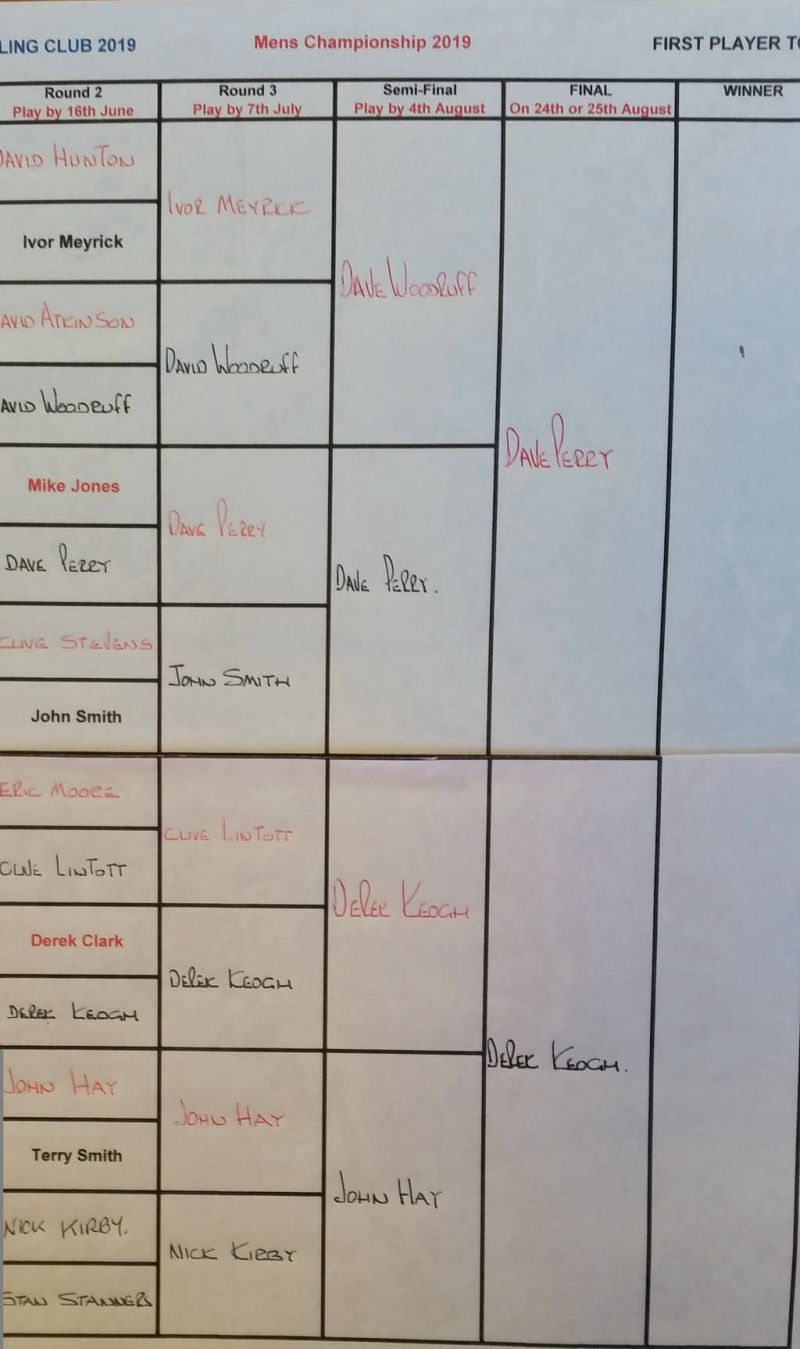 LING CLUB 2019 Mens Championship 2019 FIRST PLAYER TO
Round 2 Round 3 Semi-Final FINAL WINNER
Play by 16th June Play by 7th July Play by 4th August On 24th or 25th August
DAVID HUNTON
IVOR MEYRICK
Ivor Meyrick
DAVE WOODRUFF
AVID ATKINSON
DAVID WOODRUFF
AVID WOODRUFF
DAVE PERRY
Mike Jones
DAVE PERRY
DAVE PERRY
DAVE PERRY.
CLIVE STEVENS
JOHN SMITH
John Smith
ERIC MOORE
CLIVE LINTOTT
CLIVE LINTOTT
DEREK KEOGH
Derek Clark
DEREK KEOGH
DEREK KEOGH
DEREK KEOGH.
JOHN HAY
JOHN HAY
Terry Smith
JOHN HAY
NICK KIRBY.
NICK KIRBY
STAN STANNERS